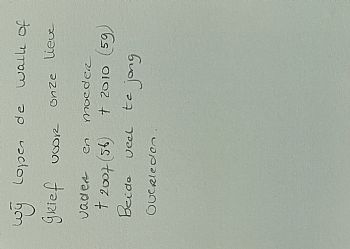 wij lopen de walk of
grief voor onze lieve
vader en moeder
† 2007 (56) † 2010 (59)
Beide veel te jong
overleden.